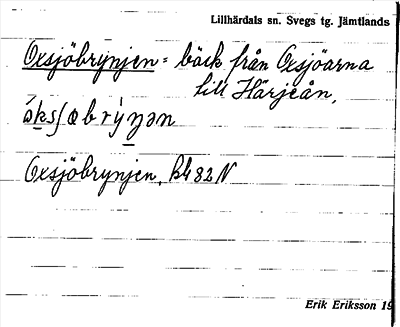 Lillhärdals sn. Svegs tg. Jämtlands
Oxsjöbrynjen = bäck från Oxsjöarna
till Härjeån.
Oxsjöbrynjen, bl 82 N
Erik Eriksson 19